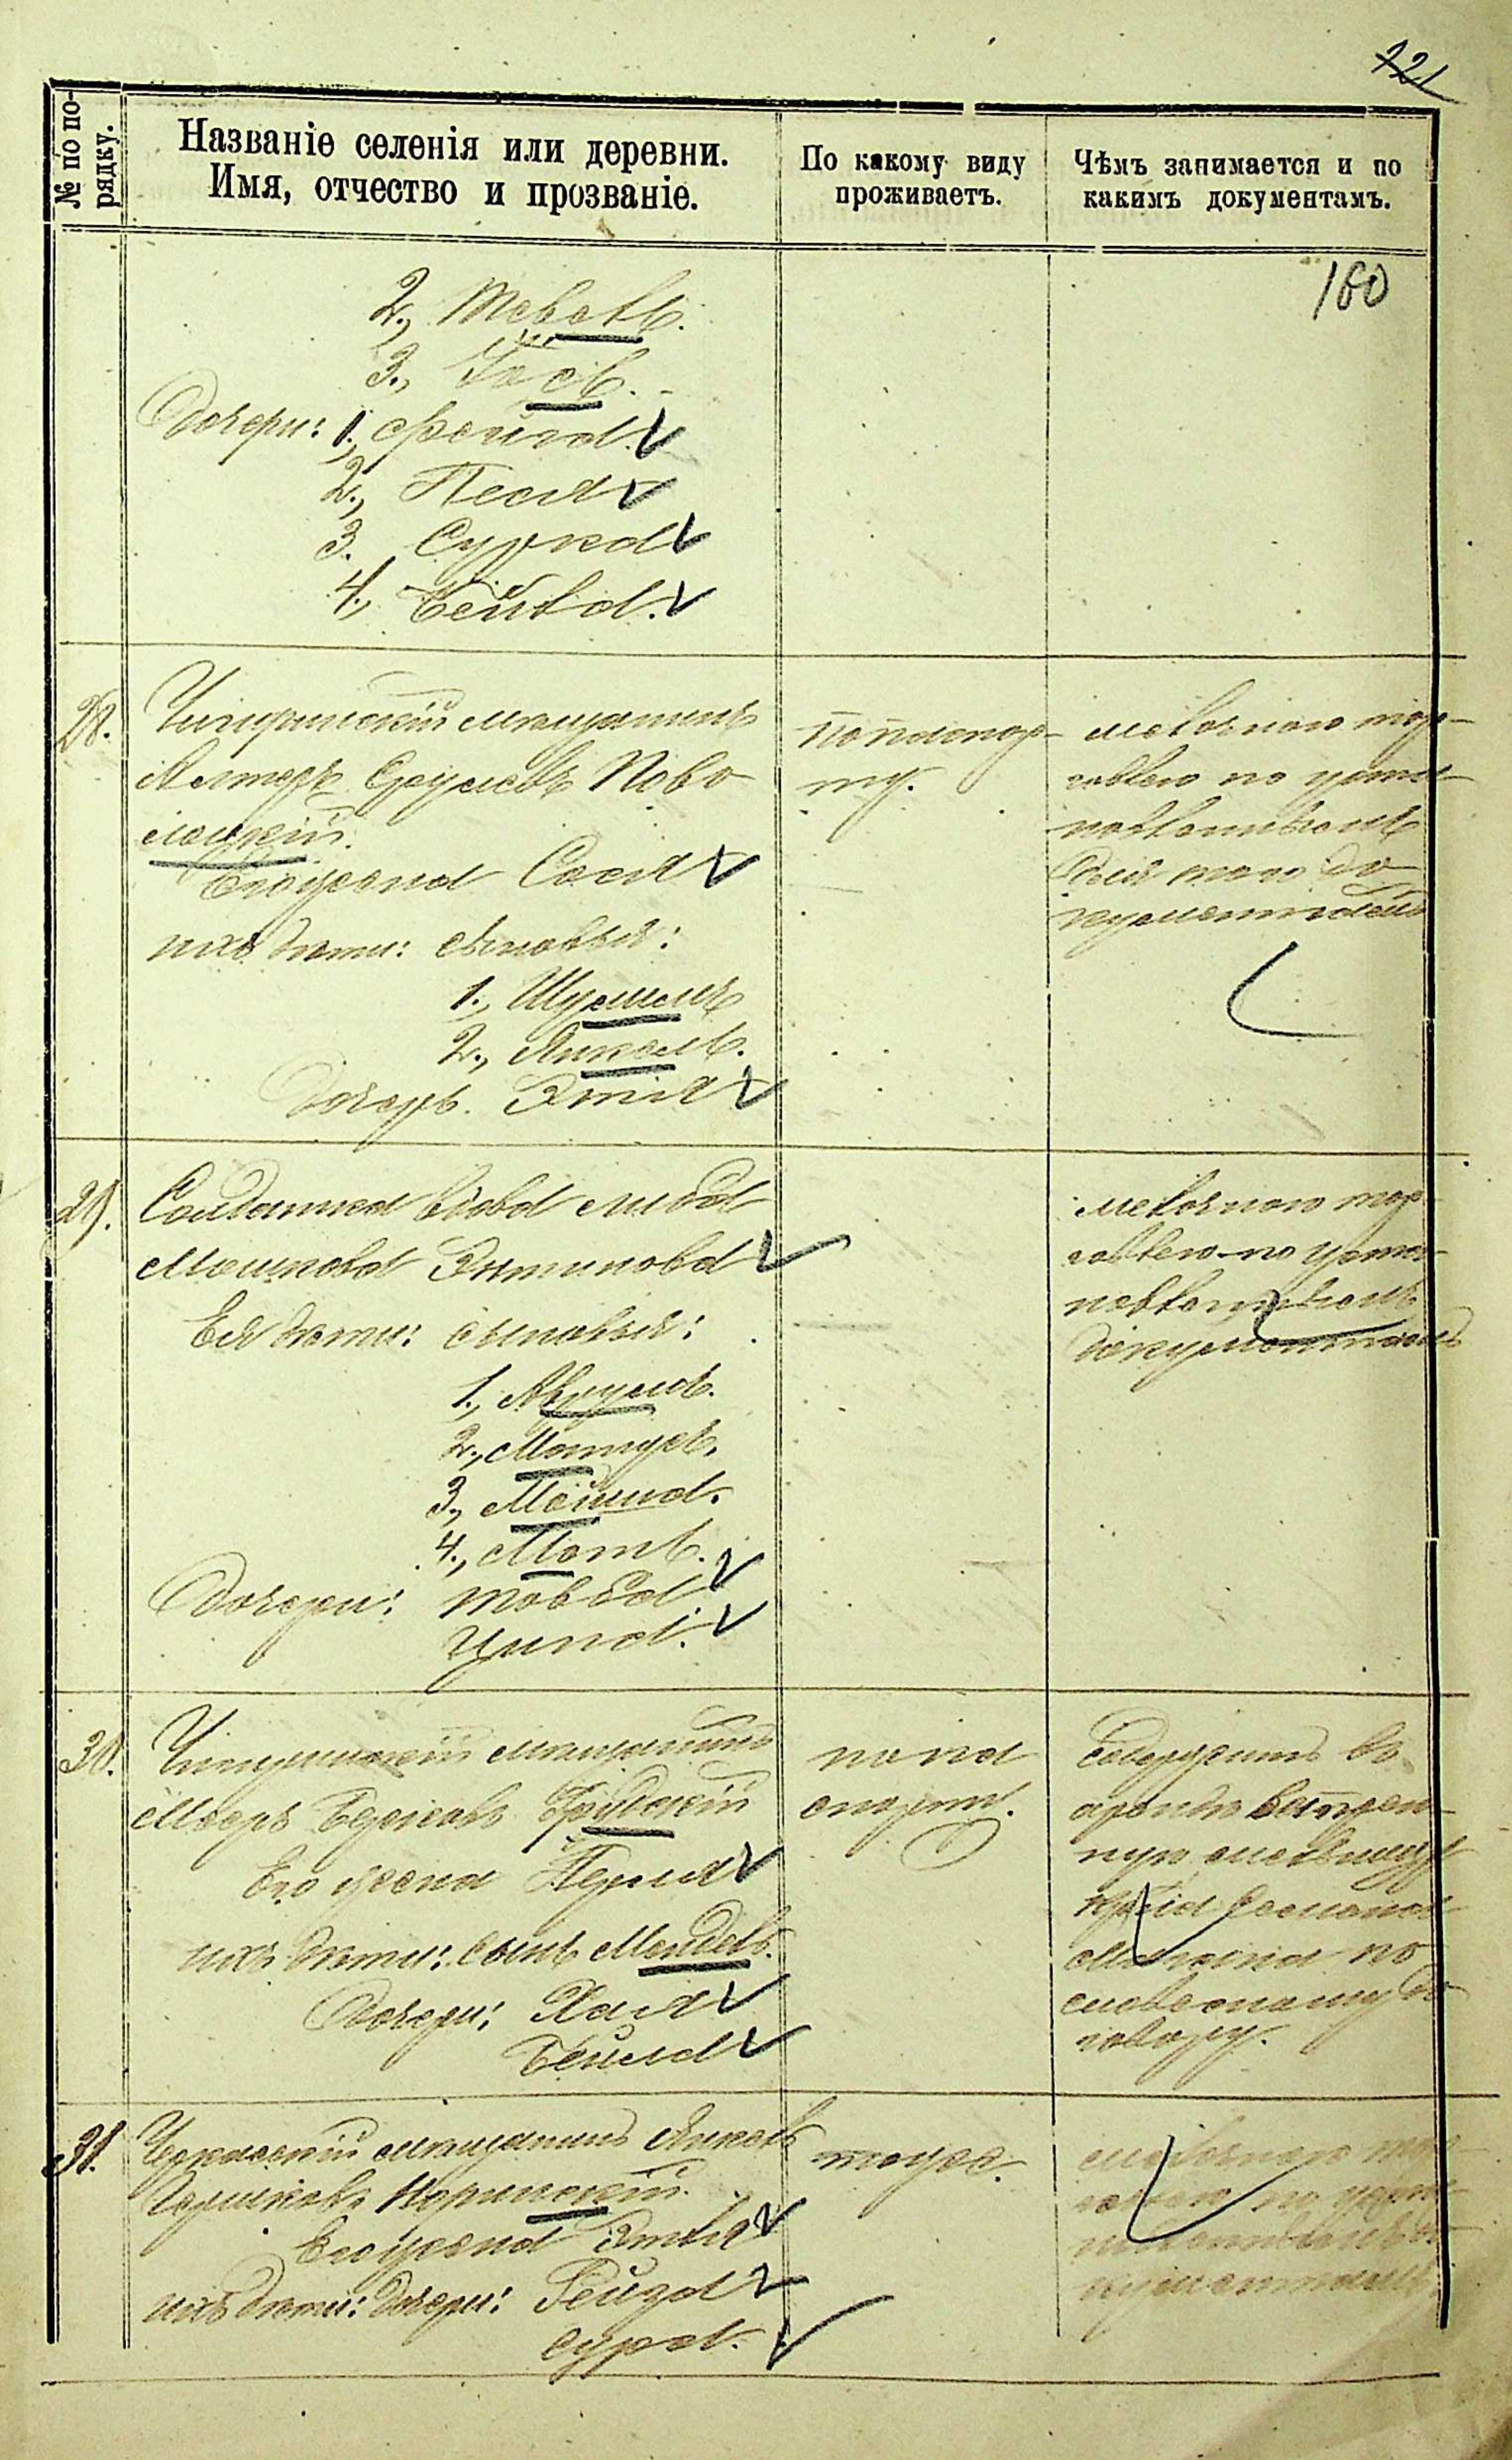 121
№ по по-
рядку.
Названіе селенія или деревни.
Имя, отчество и прозваніе.
По какому виду
проживаетъ.
Чѣмъ занимается и по
какимъ документамъ.
160
2.,
3.,
Дочери: 1., Фейга
2., Песя
3. Сурка
4., Бейла.
28.
Чигиринскій мѣщанинъ
Алтеръ Сруліовъ Ново
его жена Сося
ихъ дѣти: сыновья:
1., Шулимъ
2., Янкель.
Дочерь. Этля
По паспор-
ту.
мелочною тор-
говлею по уста-
новленнымъ
для того до
кументамъ
29.
Солдатка вдова Либа
Мошкова
Ея дѣти: сыновья:
1., Аврумъ.
2., Мотусъ.
3., Мойша.
4., Мотъ.
Дочери: Товба
Ципа.
мелочною тор-
говлею по уста-
новленнымъ
документамъ
30.
Чигиринскій мѣщанинъ
Мееръ Берковъ
Его жена Перля
ихъ дѣти: сынъ Мендель.
Дочери: Хая
Бейла
по па
спорту.
Содержитъ въ
арендѣ вѣтрен-
ную мельницу
по
словесному до
говору.
31.
Черкасскій мѣщанинъ Янкель
Его жена Этля
ихъ дѣти: Дочери: Рейза
Сура.
тоже.
мелочною тор-
говлею по уста-
новленнымъ до-
кументамъ.